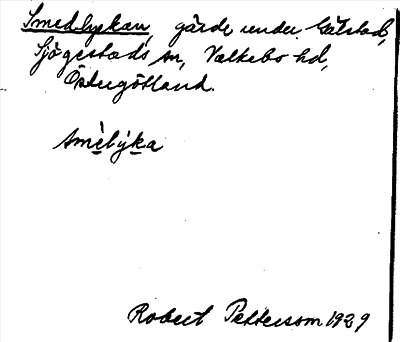 Smedlyckan, gärde under Gälstad,
Sjögestads sn, Valkebo hd,
Östergötland.
smèlýka
Robert Pettersson 1929